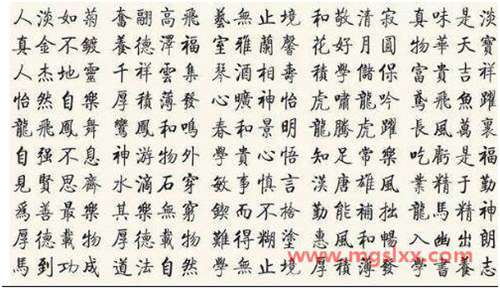 人淡如菊 奮翮高飛 藝無止境 和敬清寂 真味是淡
真金不鍍 養德澤福 室雅蘭馨 花好月圓 物華天寶
人杰地靈 千祥雲集 琴酒相壽 積學儲保 富貴吉祥
怡然自樂 厚積薄發 心曠神怡 虎嘯龍吟 鳶飛魚躍
龍飛鳳舞 鸞鳳和鳴 春和景明 龍騰虎躍 長風萬裏
自强不息 神游物外 學貴心悟 知足常樂 吃虧是福
見賢思齊 水滴石穿 敏事慎言 漢唐雄風 業精于勤
爲善最樂 其樂無窮 鍥而不捨 勤能補拙 龍馬精神
厚德載物 難得糊塗 惠風和暢 入幽出朗
馬到功成 道法自然 學無止境 厚積薄發 學書志
www.mgslxx.com